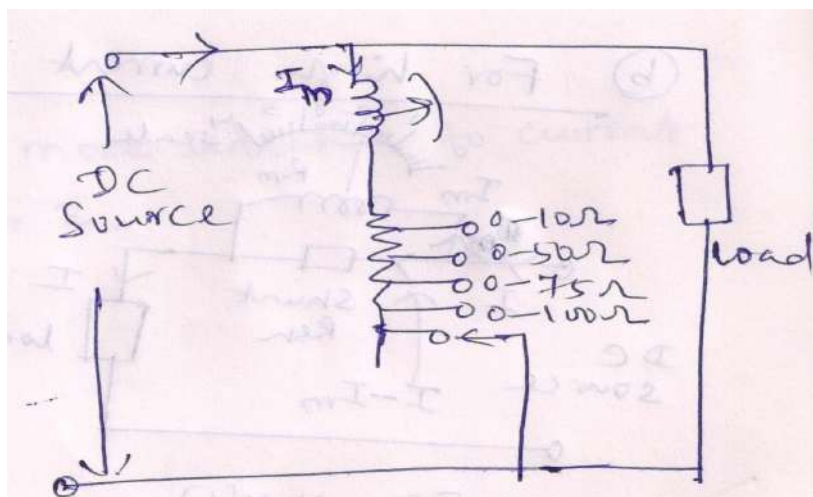 Im
DC
Source
0-10Ω
0-50Ω
0-75Ω
0-100Ω
Load